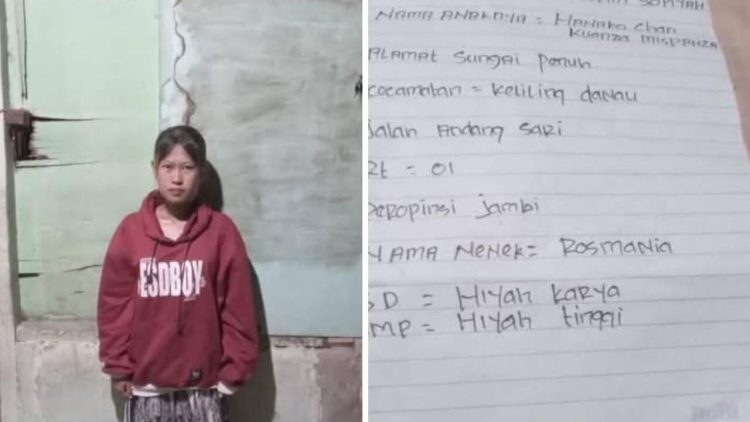 ESDBOY
NAMA ANAKNYA = HANAKO Chan
Kuanza mispanza
ALAMAT Sungai penuh
cocamatan = Keliling danau
Jalan Andang sari
Rt = 01
peropinsi jambi
NAMA Nenek = ROSMANIA
SD = HIYAH KARYA
SMP = HIYAH tinggi